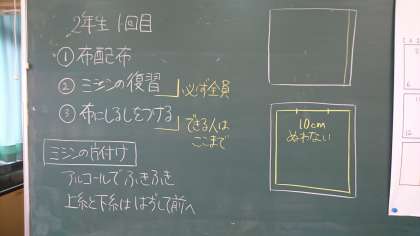 2年生 1回目
① 布配布
② ミシンの復習
必ず全員
③ 布にしるしをつける
できる人は
ここまで
ミシンの片付け
アルコールでふきふき
上糸と下糸ははずして前へ
10cm
ぬわない